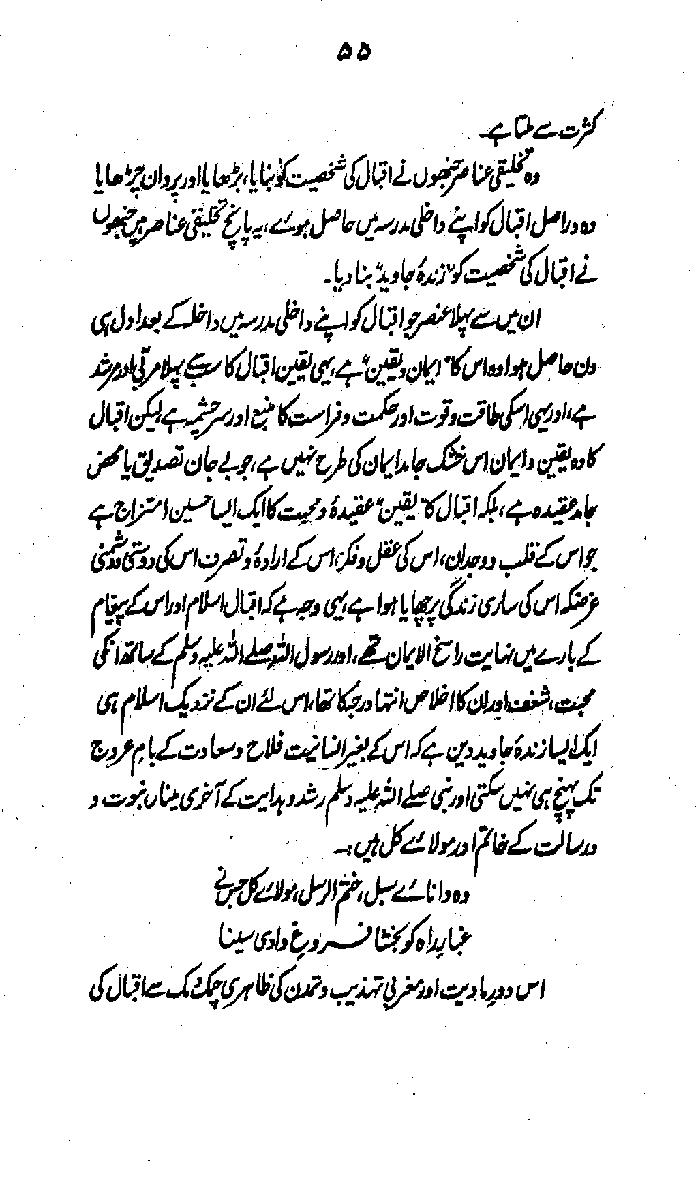 ۵۵
کثرت سے ملتا ہے۔
وہ تخلیقی عناصر جنھوں نے اقبال کی شخصیت کو بنایا، بڑھایا اور پروان چڑھایا
وہ دراصل اقبال کو اپنے داخلی مدرسہ میں حاصل ہوئے، یہ پانچ تخلیقی عناصر ہیں جنھوں
نے اقبال کی شخصیت کو "زندۂ جاوید" بنا دیا۔
ان میں سے پہلا عنصر جو اقبال کو اپنے داخلی مدرسہ میں داخلہ کے بعد اول ہی
دن حاصل ہوا وہ اس کا "ایمان و یقین" ہے، یہی یقین اقبال کا سب سے پہلا مربی اور مرشد
ہے، اور یہی اسکی طاقت و قوت اور حکمت و فراست کا منبع اور سرچشمہ ہے لیکن اقبال
کا وہ یقین و ایمان اس خشک جامد ایمان کی طرح نہیں ہے، جو بے جان تصدیق یا محض
جامد عقیدہ ہے، بلکہ اقبال کا "یقین" عقیدۂ و محبت کا ایک ایسا حسین امتزاج ہے
جو اس کے قلب و وجدان، اس کی عقل و فکر، اس کے ارادۂ و تصرف اس کی دوستی و دشمنی
غرضکہ اس کی ساری زندگی پر چھایا ہوا ہے، یہی وجہ ہے کہ اقبال اسلام اور اس کے پیغام
کے بارے میں نہایت راسخ الایمان تھے، اور رسول اللہ صلے اللہ علیہ وسلم کے ساتھ انکی
محبت، شغف اور ان کا اخلاص انتہا درجہ کا تھا، اس لئے ان کے نزدیک اسلام ہی
ایک ایسا زندۂ جاوید دین ہے کہ اس کے بغیر انسانیت فلاح و سعادت کے بام عروج
تک پہنچ ہی نہیں سکتی اور نبی صلے اللہ علیہ وسلم رشد و ہدایت کے آخری مینار، نبوت و
و رسالت کے خاتم اور مولائے کل ہیں ہ۔
وہ دانائے سبل، ختم الرسل، مولائے کل جس نے
غبار راہ کو بخشا فروغ وادی سینا
اس دور مادیت اور مغربی تہذیب و تمدن کی ظاہری چمک دمک سے اقبال کی